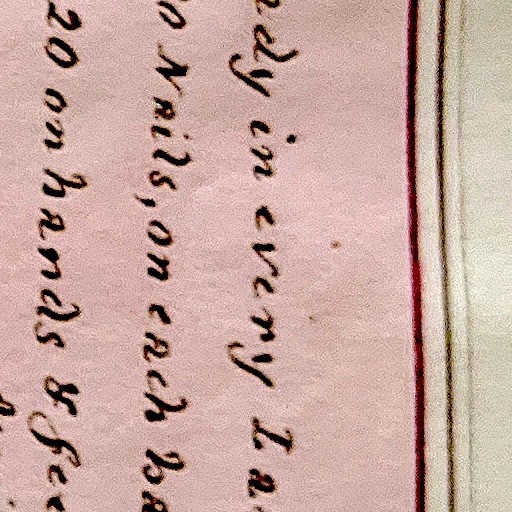 ady in every La
0 Nails, on each ha
20 on hands & fee